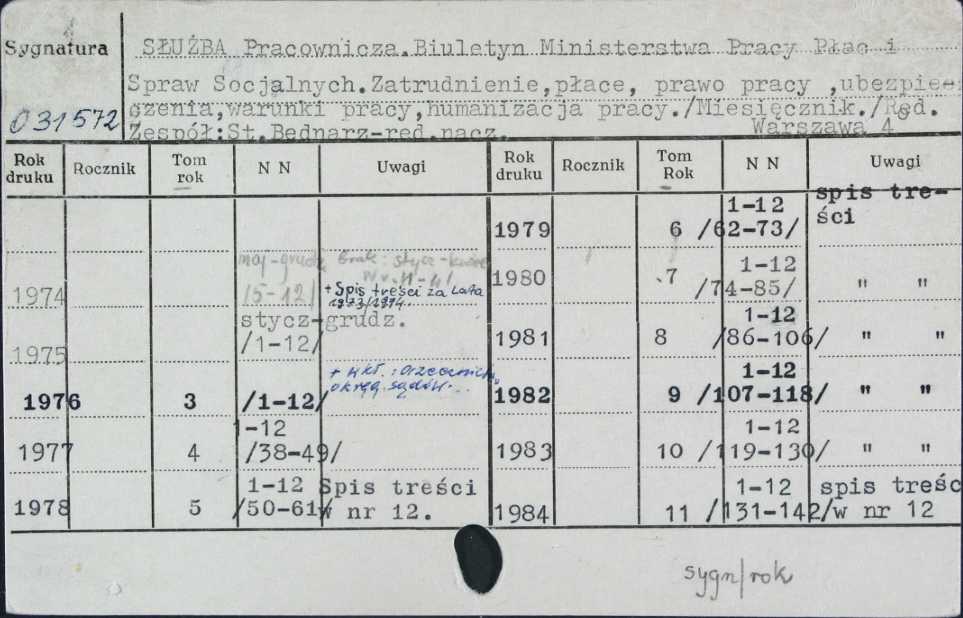 Sygnatura
SŁUŻBA Pracownicza.Biuletyn Ministerstwa Pracy Płac i
Spraw Socjalnych.Zatrudnienie,płace, prawo pracy ,ubezpie-
czenia,warunki pracy,humanizacja pracy./Miesięcznik./Red.
031572
Zespół:St.Bednarz-red.nacz. Warszawa 4
Rok druku Rocznik Tom rok N N Uwagi Rok druku Rocznik Tom Rok N N Uwagi
1979 6 1-12 /62-73/ spis tre-
ści
1974 maj-grudz /5-12/ Brak: stycz-kwiec w v.
+ Spis treści za lata
1973/1974.
1980 7 1-12 /74-85/ " "
1975 stycz-grudz.
/1-12/
1981 8 1-12 /86-106/ " "
1976 3 /1-12/ + wkł.:
okręg. sądów...
1982 9 1-12 /107-118/ " "
1977 4 1-12 /38-49/
1983 10 1-12 /119-130/ " "
1978 5 1-12 /50-61/ Spis treści
w nr 12.
1984 11 1-12 /131-142/ spis treśc
w nr 12
sygn/rok